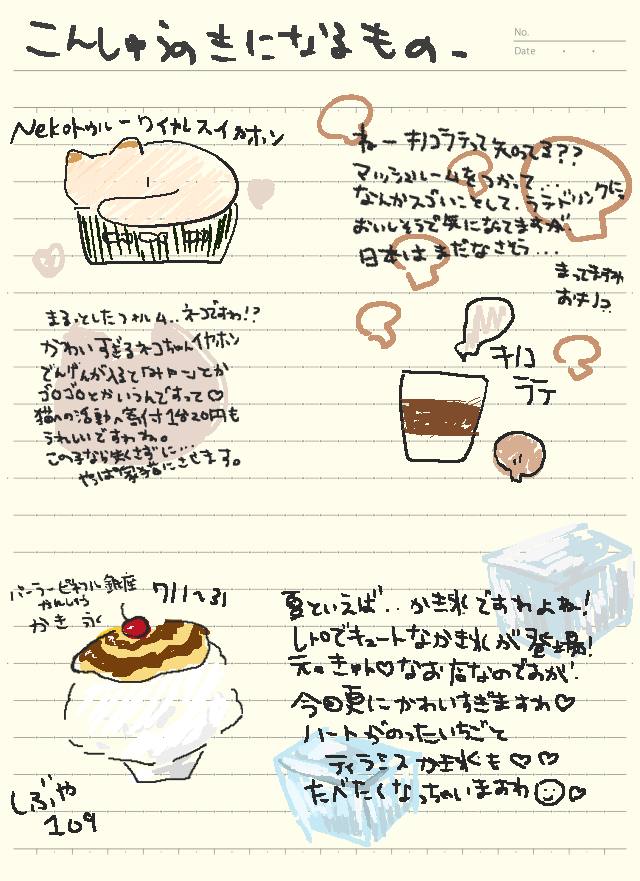 こんしゅうのきになるもの
No.
Date
Nekoトゥルーワイヤレスイヤホン
まるっとしたフォルム..ネコですわ!?
かわいすぎるネコちゃんイヤホン
でんげんが入ると「ミャーン」とか
ゴロゴロとかいうんですって♡
猫への活動へ寄付1台20円も
うれしいですわね。
この子なら無くさずに...
ねーキノコラテって知ってる??
マッシュルームをつかって...
なんかスゴいことして、ラテドリンクに。
おいしそうで気になってますが
日本はまだなさそう...
まってますわ
キノコ
ラテ
パーラービネフル銀座
かき氷
7/1〜31
しぶや
109
夏といえば..かき氷ですわよね!
レトロでキュートなかき氷が登場!
元々きゅん♡なお店なのですが
今回夏にかわいすぎますわ♡
ハートがのったいちごと
ティラミスかき氷も♡♡
たべたくなっちゃいますわ☺♡